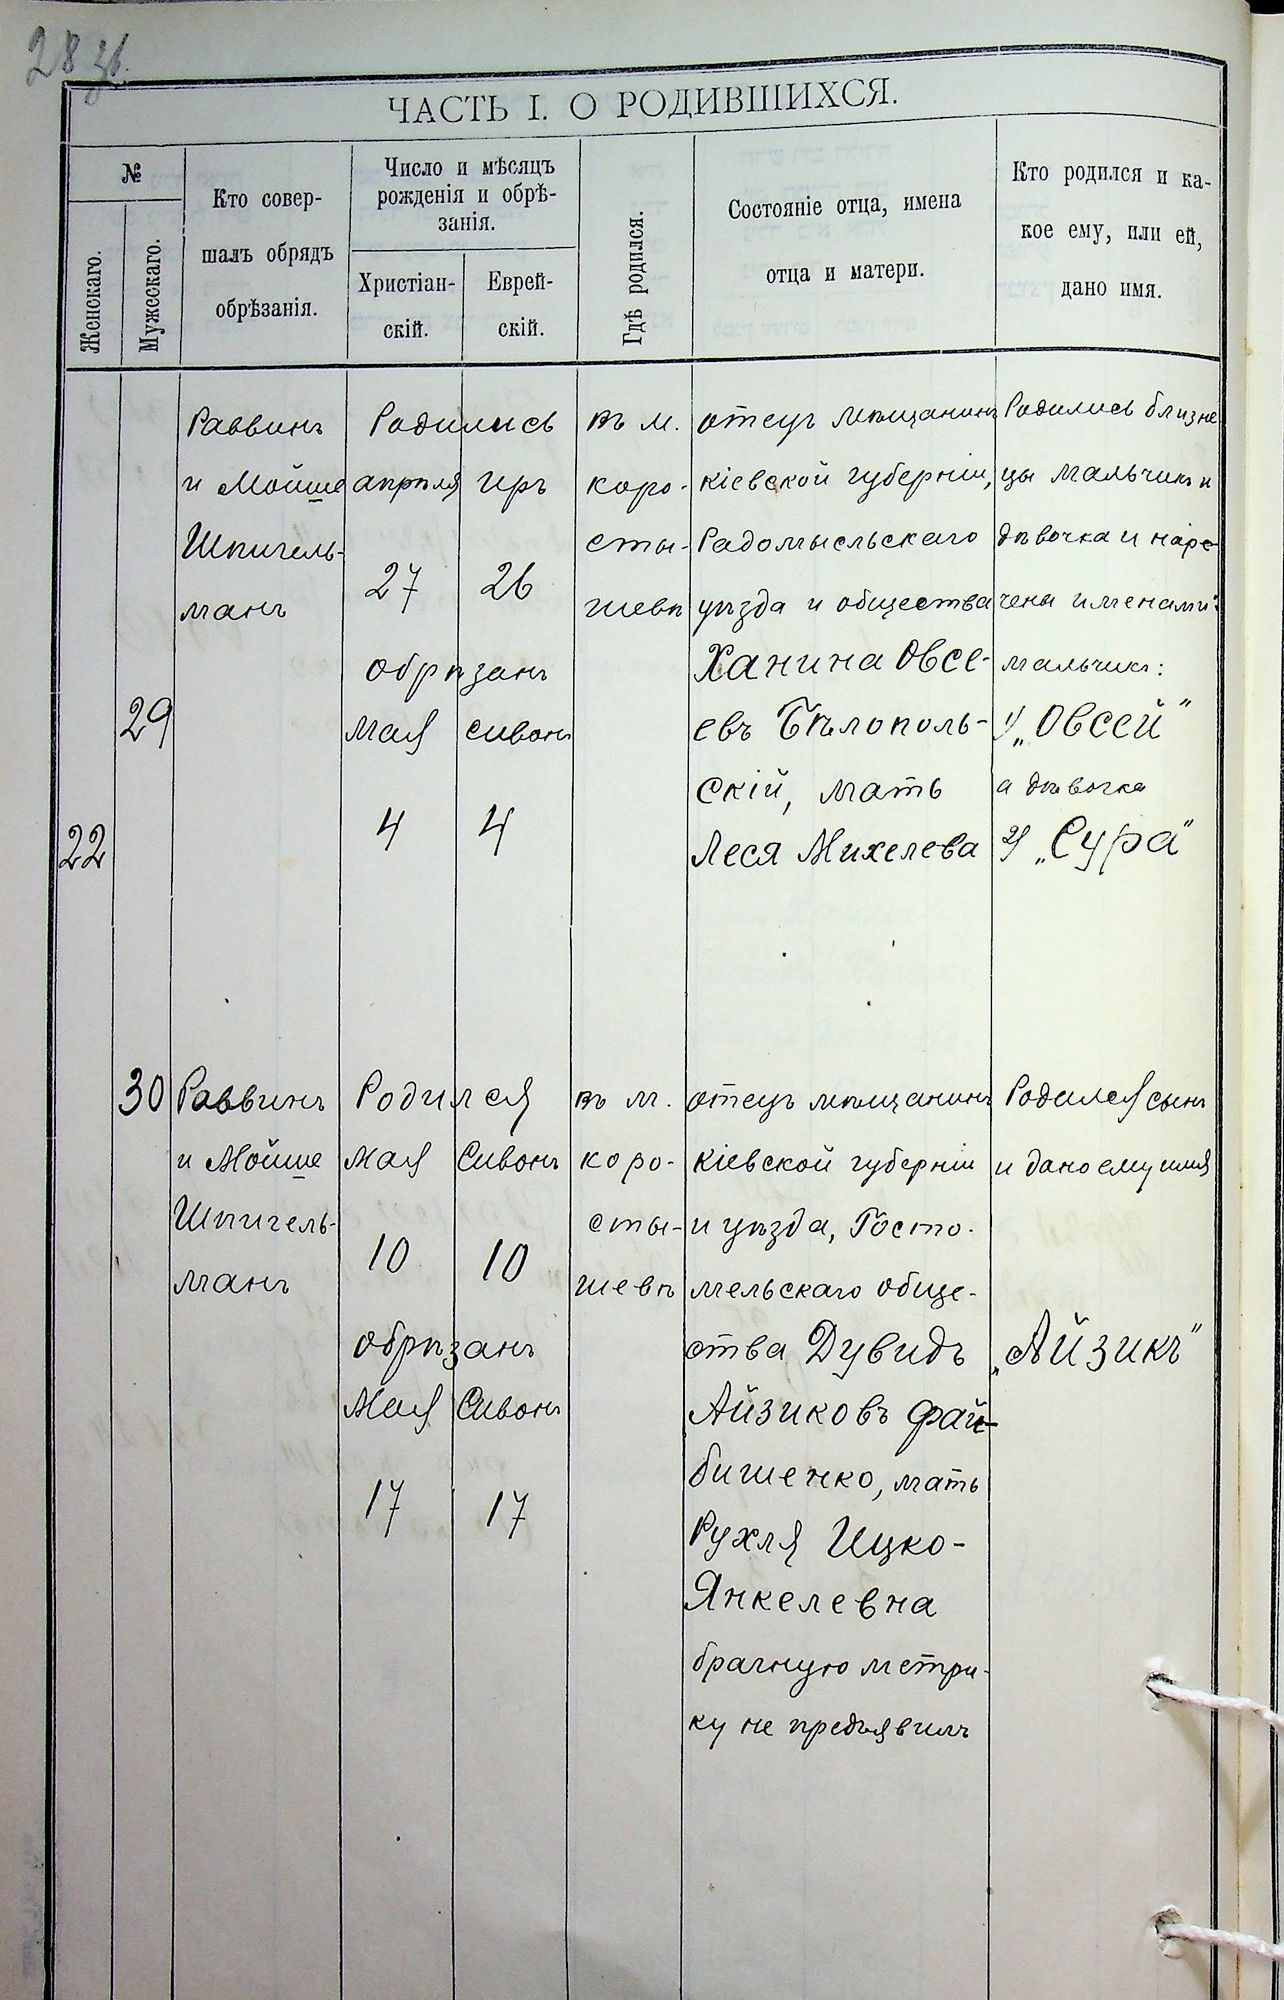 28 зв.
ЧАСТЬ I. О РОДИВШИХСЯ.
№
Женскаго.
Мужескаго.
Кто совер-
шалъ обрядъ
обрѣзанія.
Число и мѣсяцъ
рожденія и обрѣ-
занія.
Христіан-
скій.
Еврей-
скій.
Гдѣ родился.
Состояніе отца, имена
отца и матери.
Кто родился и ка-
кое ему, или ей,
дано имя.
22
29
Раввинъ
и Мойше
Шпигель-
манъ
Родились
апрѣля иръ
27 26
обрѣзанъ
мая сивонъ
4 4
въ м.
коро-
сты-
шевѣ
отецъ мѣщанинъ
кіевской губерніи,
Радомысльскаго
уѣзда и общества
Ханина Овсе-
евъ Бѣлополь-
скій, мать
Леся Михелева
Родились близне
цы мальчикъ и
дѣвочка и наре-
чены именами:
мальчикъ:
1/ „Овсей"
а дѣвочка
2/ „Сура"
30
Раввинъ
и Мойше
Шпигель-
манъ
Родился
мая Сивонъ
10 10
обрѣзанъ
Мая Сивонъ
17 17
въ м.
коро-
сты-
шевѣ
отецъ мѣщанинъ
кіевской губерніи
и уѣзда, Госто-
мельскаго обще-
ства Дувидъ
Айзиковъ Фай-
бишенко, мать
Рухля Ицко-
Янкелевна
брачную метри-
ку не предъявилъ
Родился сынъ
и дано ему имя
„Айзикъ"